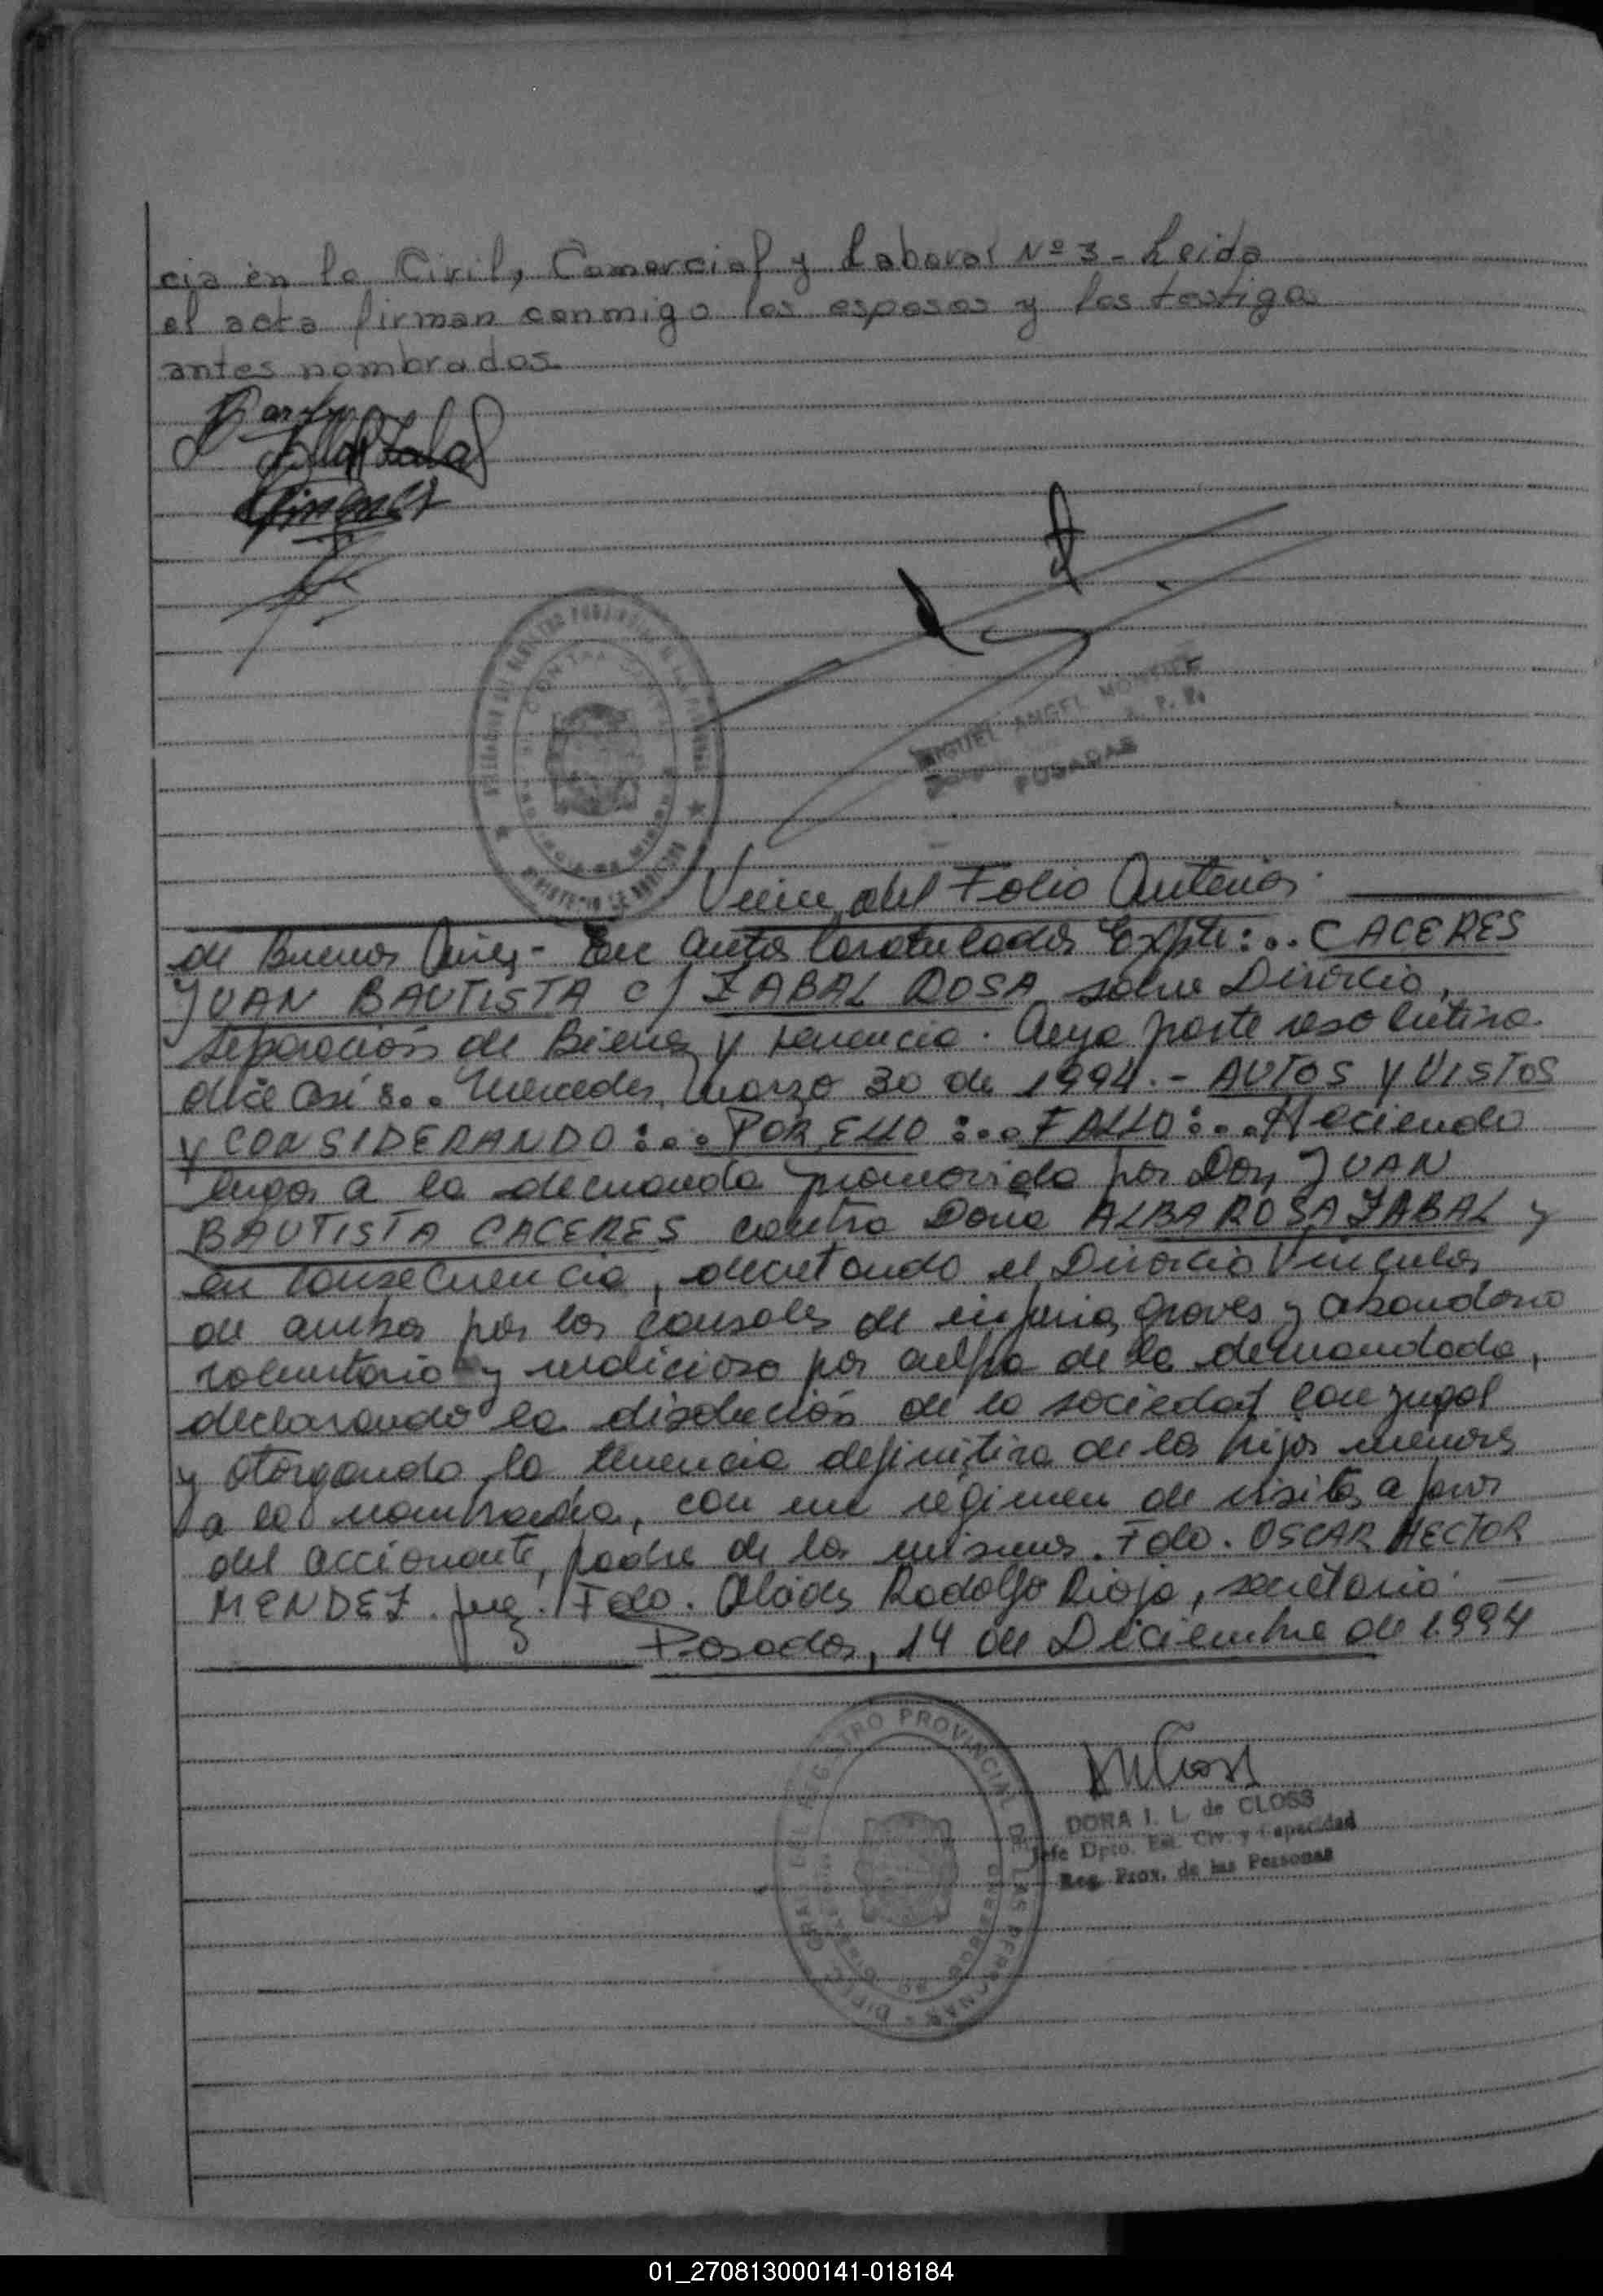 cia en lo Civil, Comercial y Laboral Nº 3 - Leida
el acta firman conmigo los esposos y los testigos
antes nombrados
MIGUEL ANGEL
POSADAS
Viene del Folio Anterior
de Buenos Aires - En autos Caratulados Expte: .. CACERES
JUAN BAUTISTA c/ ZABAL ROSA sobre Divorcio,
separación de Bienes y tenencia. Cuya parte resolutiva
dice así: .. Mercedes, Marzo 30 de 1994. - AUTOS Y VISTOS
Y CONSIDERANDO: .. POR ELLO: .. FALLO: .. Haciendo
lugar a la demanda promovida por Don JUAN
BAUTISTA CACERES contra Doña ALBA ROSA ZABAL y
en consecuencia, decretando el Divorcio Vincular
de ambos por las causales de injurias graves y abandono
voluntario y malicioso por culpa de la demandada,
declarando la disolución de la sociedad conyugal
y otorgando la tenencia definitiva de los hijos menores
a la nombrada, con un regimen de visitas a favor
del accionante, padre de los mismos. Fdo. OSCAR HECTOR
MENDEZ. Juez. Fdo. Alcides Rodolfo Rioja, secretario
Posadas, 14 de Diciembre de 1994
REGISTRO PROVINCIAL DE LAS PERSONAS
DORA I. L. de CLOSS
Jefe Dpto. Est. Civ. y Capacidad
Reg. Prov. de las Personas
01_270813000141-018184